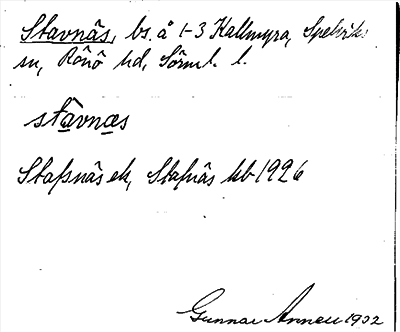 Stavnäs, bs. å 1-3 Källmyra, Spelviks
sn, Rönö hd, Sörml. l.
stavnæs
Stafsnäs ek, Stafnäs kb 1926
Gunnar Anneu 1932